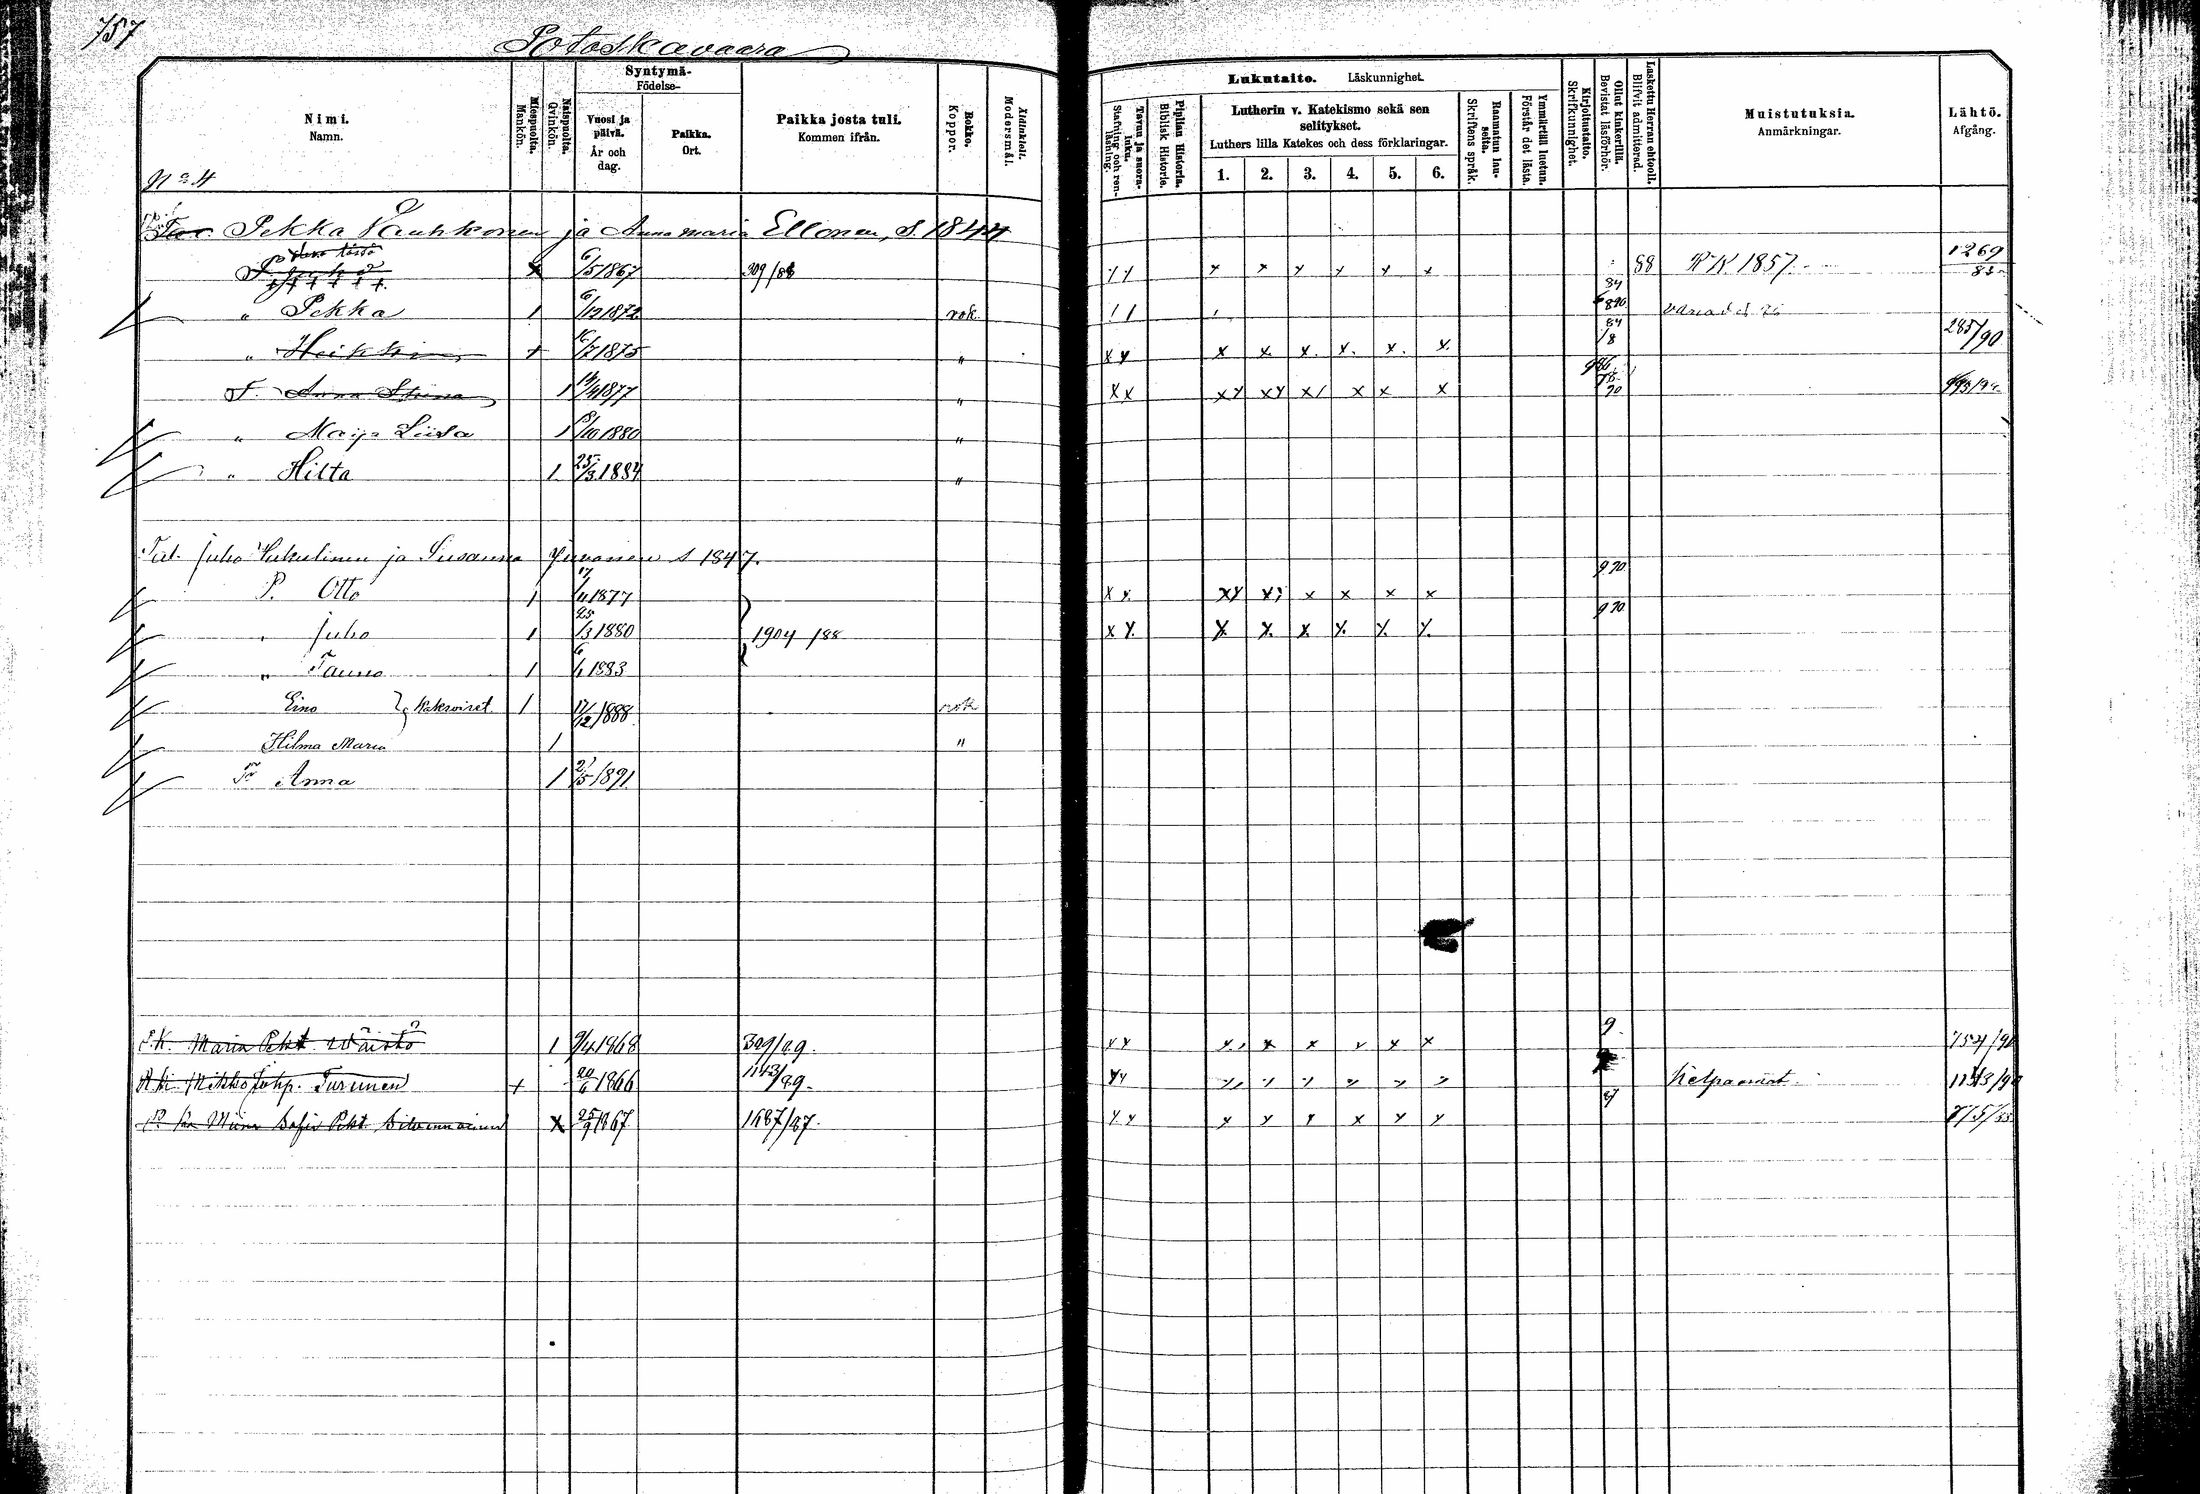 757
Potoskavaara
Nimi.
Namn.
Miespuolta.
Mankön.
Naispuolta.
Qvinkön.
Syntymä-
Födelse-
Vuosi ja päivä.
År och dag.
Paikka.
Ort.
Paikka josta tuli.
Kommen ifrån.
Rokko.
Koppor.
Äidinkieli.
Modersmål.
Lukutaito. Läskunnighet.
Tavuu ja suora-luku.
Stafning och ren-läsning.
Piplian Historia.
Biblisk Historie.
Lutherin v. Katekismo sekä sen selitykset.
Luthers lilla Katekes och dess förklaringar.
1. 2. 3. 4. 5. 6.
Raamatun lau-seita.
Skriftens språk.
Ymmärtää luetun.
Förstår det lästa.
Kirjoitustaito.
Skrifkunnighet.
Ollut kinkerillä.
Bevistat läsförhör.
Laskettu Herran ehtool.
Blifvit admitterad.
Muistutuksia.
Anmärkningar.
Lähtö.
Afgång.
No 4
Pekka Pauhkonen ja Anna Maria Ellonen, S. 1844
6/5 1867 309/88 x x x x x x 88 RK 1857 1269/85
" Pekka 1 6/12 1872 rok 84
" Heikki + 16/7 1875 " x x x x. x. x. x. x. 84/8 285/90
T. Anna Stiina 1 14/4 1877 " x x xy xy x/ x x x 90
" Maija Liisa 1 8/10 1880 "
" Hilta 1 25/3 1884 "
Tal. Juho Kukulinen ja Susanna Juvonen s 1847.
P. Otto 1 17/11 1877 x x. xy x x x x x 9 90
" Juho 1 25/3 1880 1904/88 x x. x. x. x. x. x. x. 9 90
" Tauno 1 6/1 1883
Eino } Kaksoiset 1 17/12 1888 rok
Hilma Maria 1 "
Tr Anna 1 21/5 1891
P.K. Maria Pekt. Wäistö 1 9/4 1868 309/89. x x x x x x x x 9. 754/90
RK Mikko Juhp. Turunen + 20/6 1866 1143/89 Kelpaavat 1143/90
Miina Sofia Pekt. Silvennoinen x 25/9 1867 1487/87. x x x x x x x x